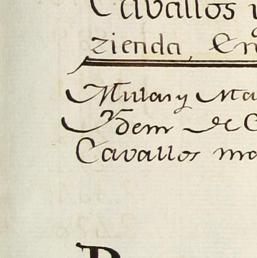 Cavallos
zienda, En
Mulas y Ma
Ydem de C
Cavallos ma